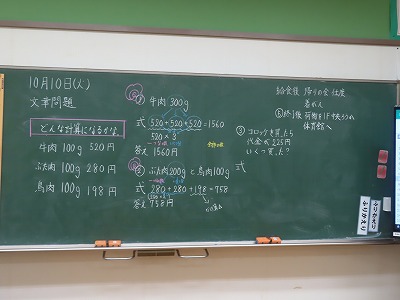 10月10日(火)
文章問題
どんな計算になるかな。
牛肉 100g 520円
ぶた肉 100g 280円
鳥肉 100g 198円
① 牛肉 300g
式 520+520+520=1560
520×3
答え 1560円
② ぶた肉200gと鳥肉100g
式 280+280+198=758
答え 758円
給食後 帰りの会 仕度
③ コロッケを買ったら
代金が225円
いくつ買った?
式
体育館へ
ふりかえり
ふりかえり